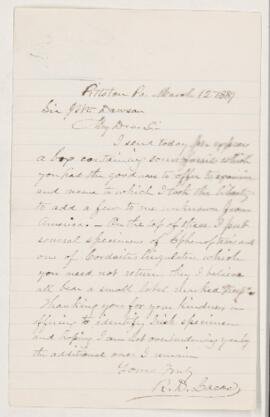 Pittston Pa March 12 1889
Sir J Wm Dawson
My Dear Sir
I send today per express
a box containing some fossils which
you had the goodness to offer to examine
and name to which I took the liberty
to add a few to me unknown from
America. On the top of these I put
several specimens of Sphenopteris and
one of Cordaites angulatus which
you need not return they I believe
all bear a small label marked
Thanking you for your kindness in
offering to identify such specimens
and hoping I am not overburdening you by
the additional ones I remain
Yours truly
R. D. Lacoe